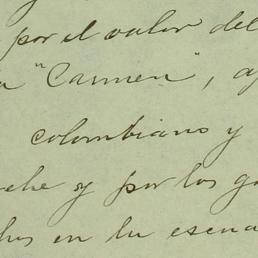 por el valor del
a "Carmen", a
colombiano y
che y por los g
hos en la escua